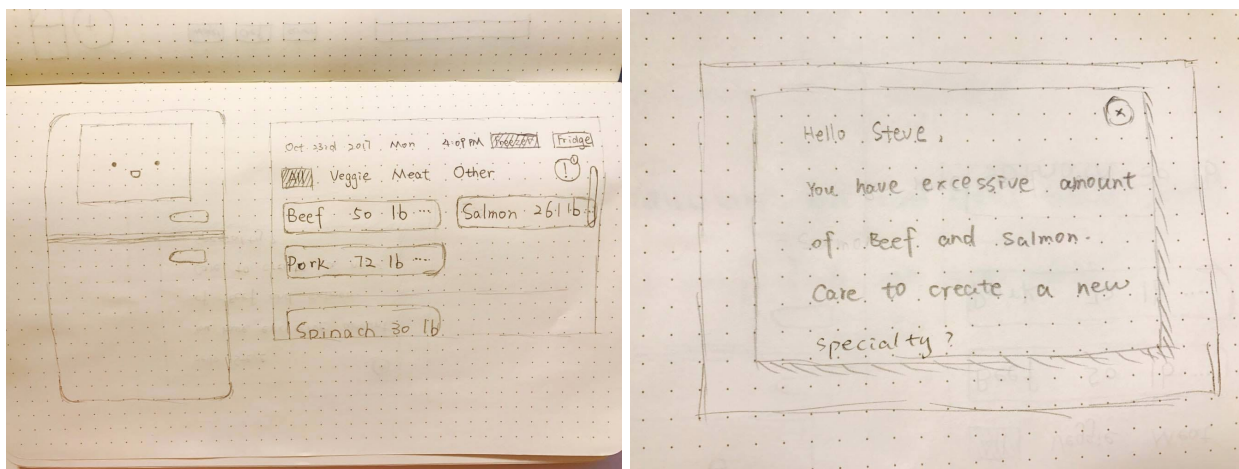 Oct 23rd 2017 Mon 4:09 PM Fridge
Veggie Meat Other
Beef 50 lb ...
Salmon 261 lb
Pork 72 lb ...
Spinach 30 lb
Hello Steve,
You have excessive amount
of Beef and Salmon.
Care to create a new
specialty?